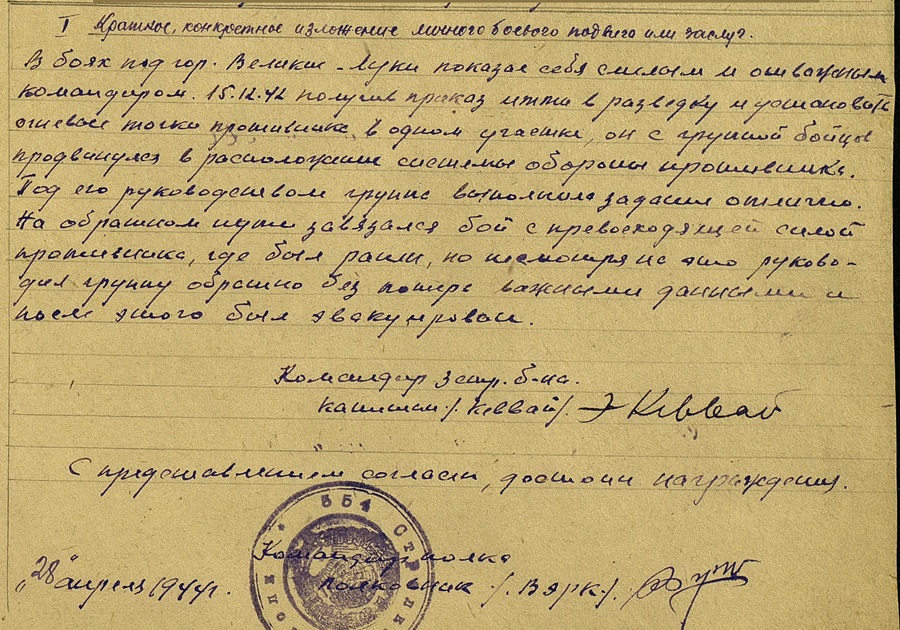 I Краткое, конкретное изложение личного боевого подвига или заслуг.
В боях под гор. Великие-Луки показал себя смелым и отважным
командиром. 15.12.42 получив приказ итти в разведку и установить
огневые точки противника в одном участке, он с группой бойцов
продвинулся в расположение системы обороны противника.
Под его руководством группа выполнила задание отлично.
На обратном пути завязался бой с превосходящей силой
противника, где был ранен, но несмотря на это руково-
дил группу обратно без потерь важными данными и
после этого был эвакуирован.
Командир 3 стр. б-на.
капитан /. Кивай/.
С представлением согласен, достоин награждения.
554 Стрелк
Командир полка
„28" апреля 1944г. Полковник /. Вярк/.